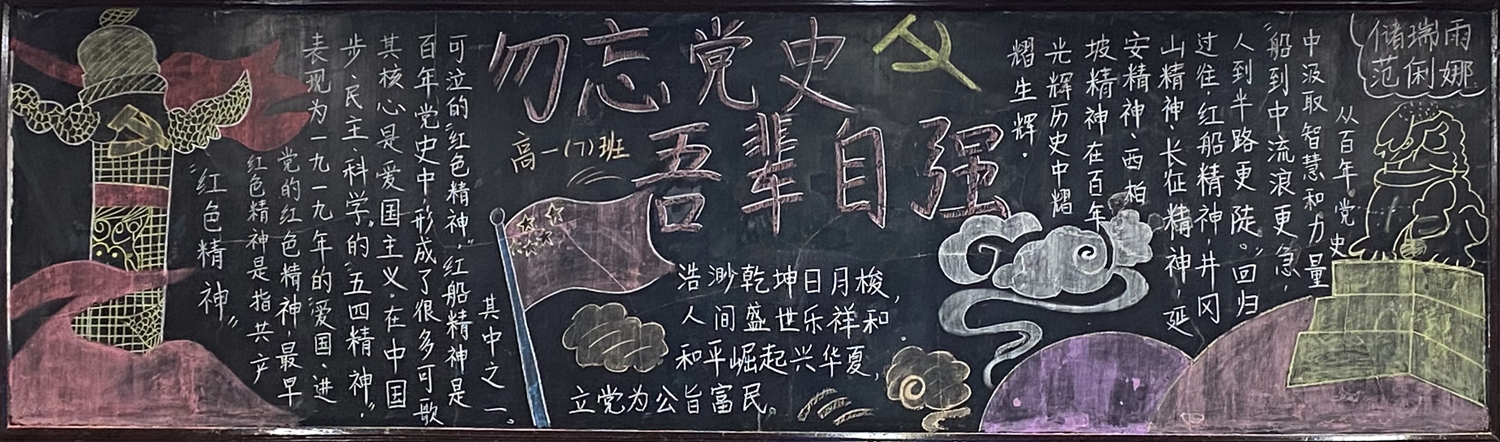 勿忘党史
吾辈自强
高一(7)班
"红色精神"
红色精神是指共产
党的红色精神,最早
表现为一九一九年的"爱国、进
步、民主、科学。"的"五四精神",
其核心是爱国主义,在中国
百年党史中,形成了很多可歌
可泣的"红色精神,"红船精神是
其中之一。
浩渺乾坤日月梭,
人间盛世乐祥和
和平崛起兴华夏,
立党为公旨富民。
从百年党史
中汲取智慧和力量
"船到中流浪更急,
人到半路更陡。"回归
过往,红船精神、井冈
山精神、长征精神、延
安精神、西柏
坡精神在百年
光辉历史中耀
耀生辉.
储瑞雨
范俐娜